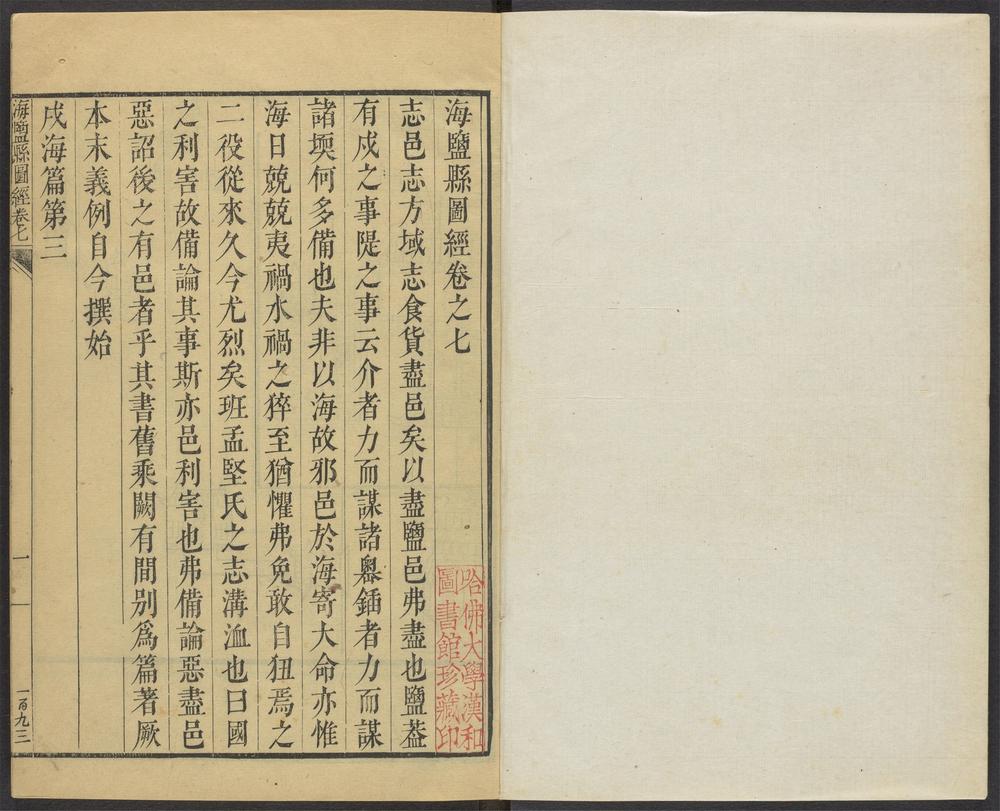 海鹽縣圖經卷之七
志邑志方域志食貨盡邑矣以盡鹽邑弗盡也鹽葢
有戍之事隄之事云介者力而謀諸櫐鍤者力而謀
諸堧何多備也夫非以海故邪邑於海寄大命亦惟
海日兢兢夷禍水禍之猝至猶懼弗免敢自狃焉之
二役從來久今尤烈矣班孟堅氏之志溝洫也曰國
之利害故備論其事斯亦邑利害也弗備論惡盡邑
惡詔後之有邑者乎其書舊乘闕有間别爲篇著厥
本末義例自今撰始
戍海篇第三
海鹽縣圖經卷七
一
一百九三
哈佛大學漢和
圖書館珍藏印